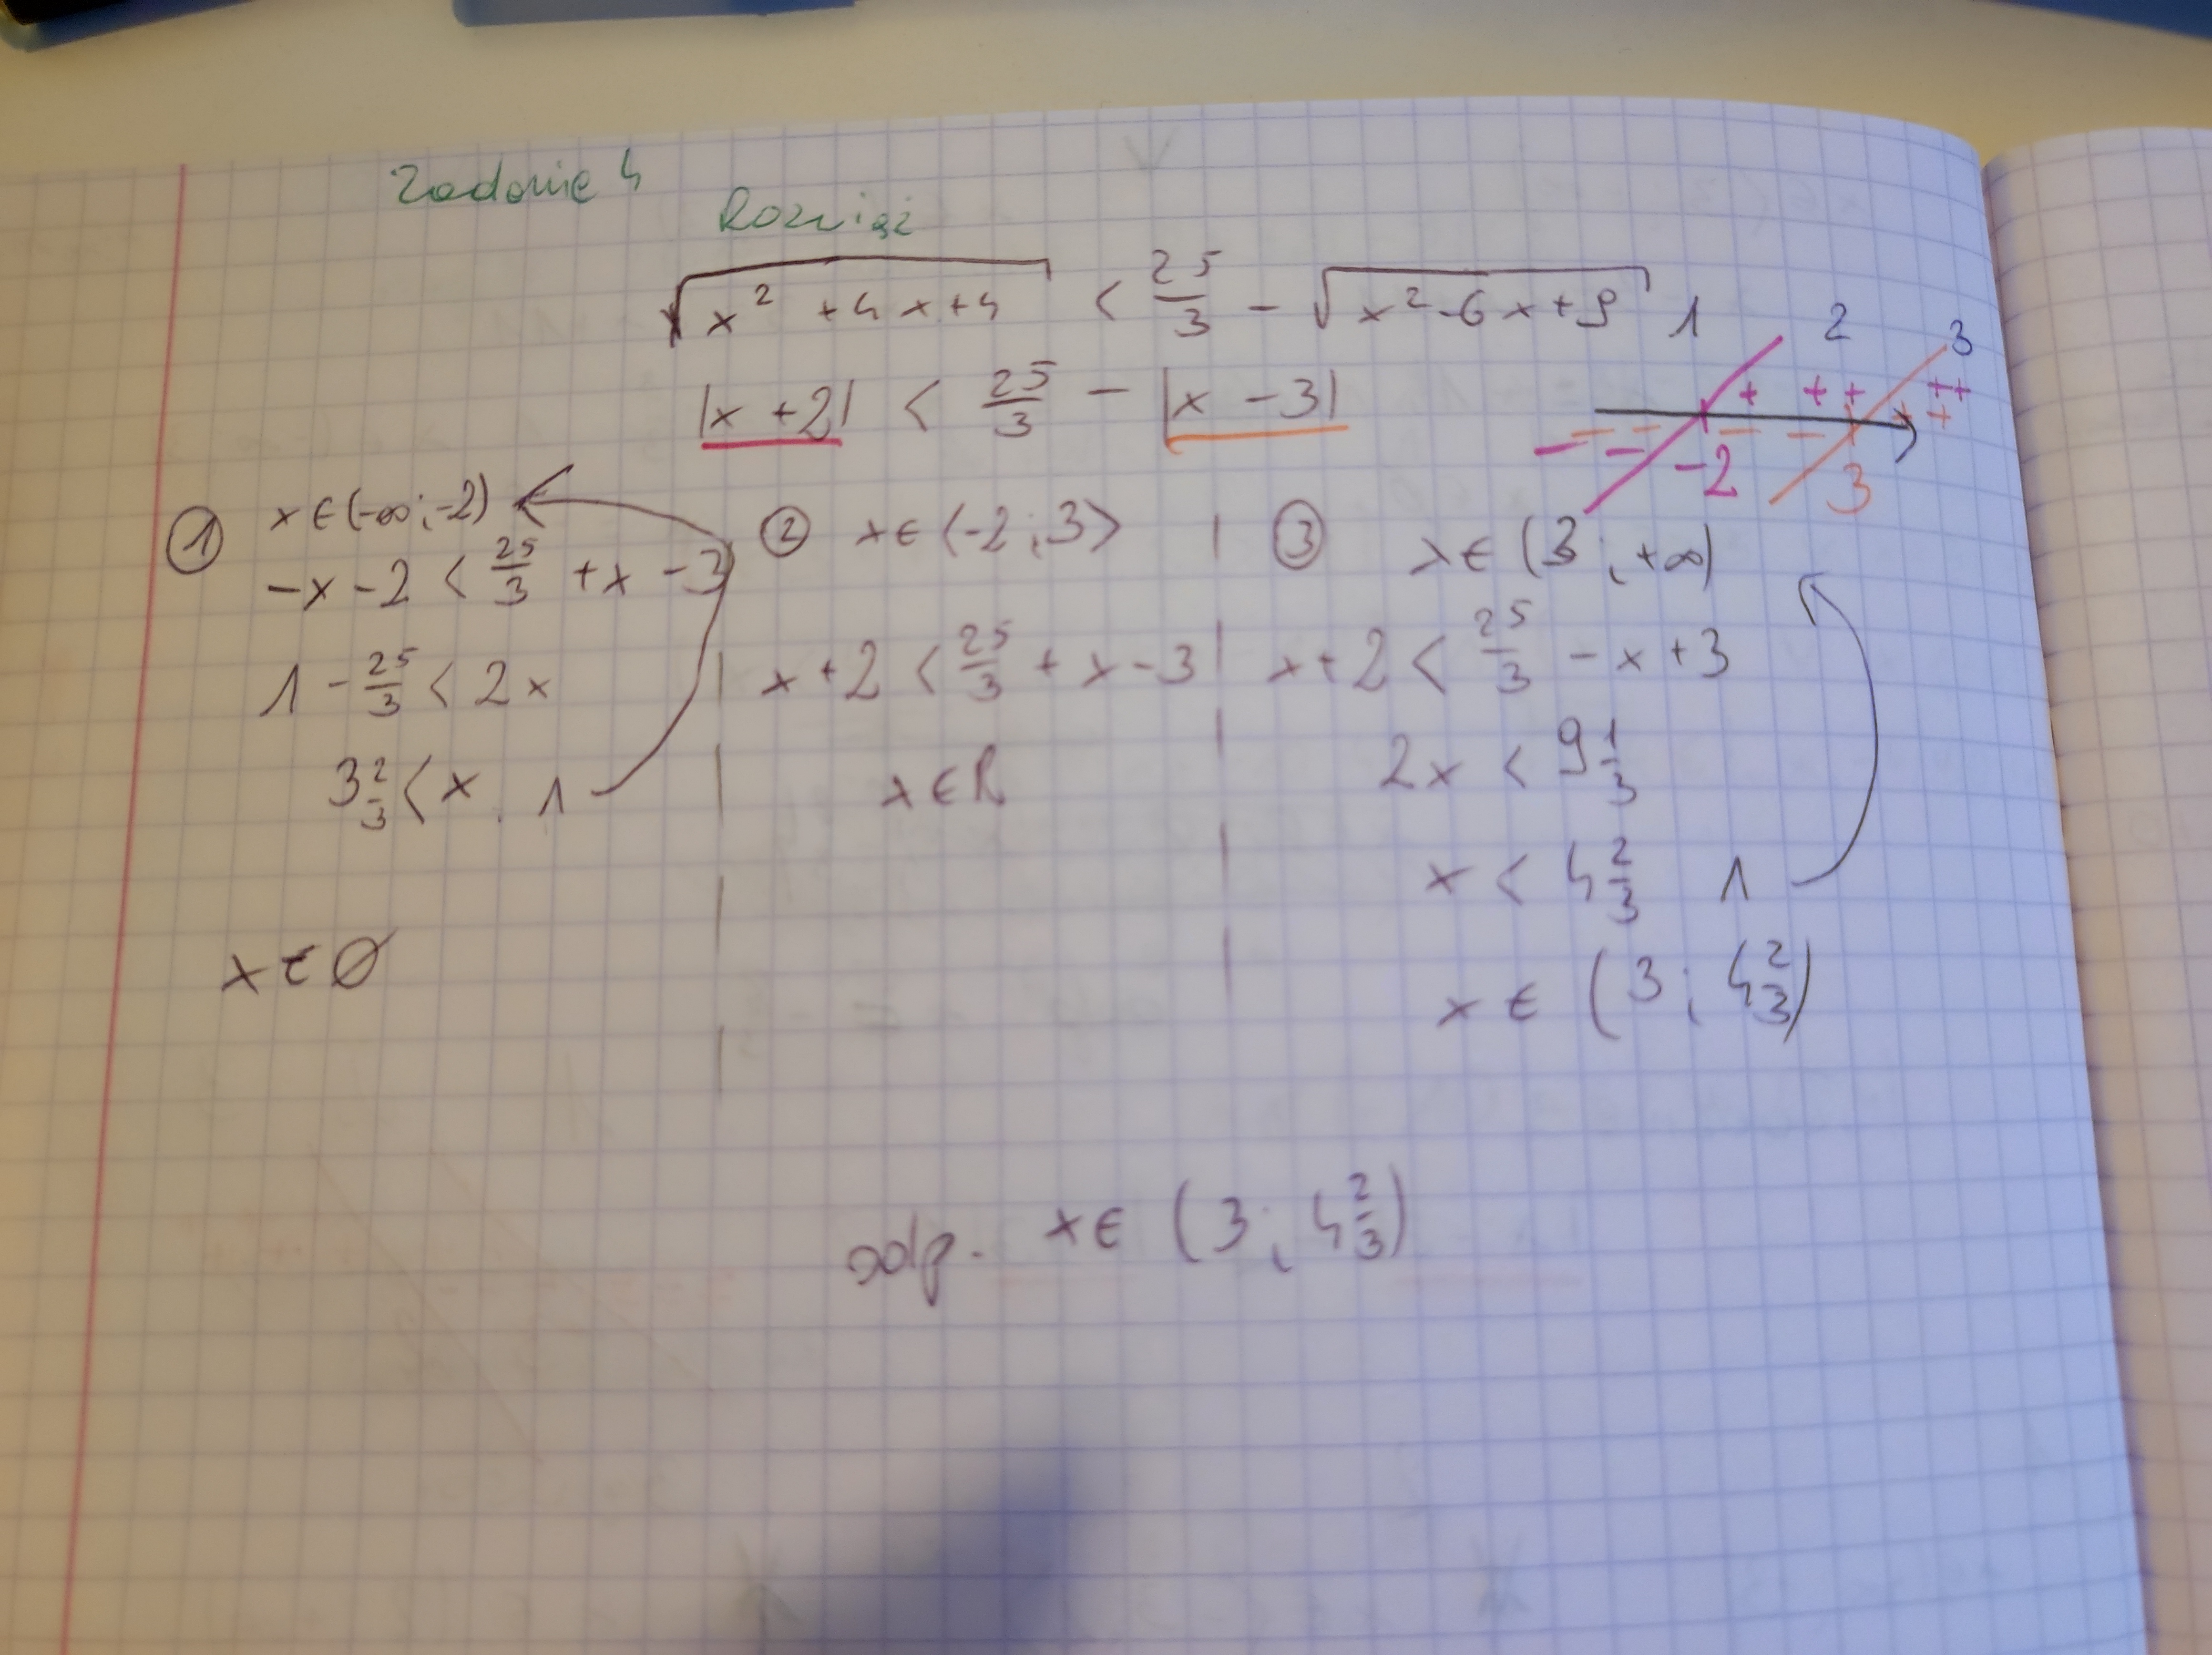 Zadanie 4
Rozwiąż
√(x² + 4x + 4) < 25/3 - √(x² - 6x + 9)
|x + 2| < 25/3 - |x - 3|
1 2 3
+ + + + + + +
- - - - - -
-2 3
① x ∈ (-∞; -2)
-x - 2 < 25/3 + x - 3
1 - 25/3 < 2x
3 2/3 < x ∧
x ∈ ∅
② x ∈ ⟨-2; 3⟩
x + 2 < 25/3 + x - 3
x ∈ R
③ x ∈ (3; +∞)
x + 2 < 25/3 - x + 3
2x < 9 1/3
x < 4 2/3 ∧
x ∈ (3; 4 2/3)
odp. x ∈ (3; 4 2/3)